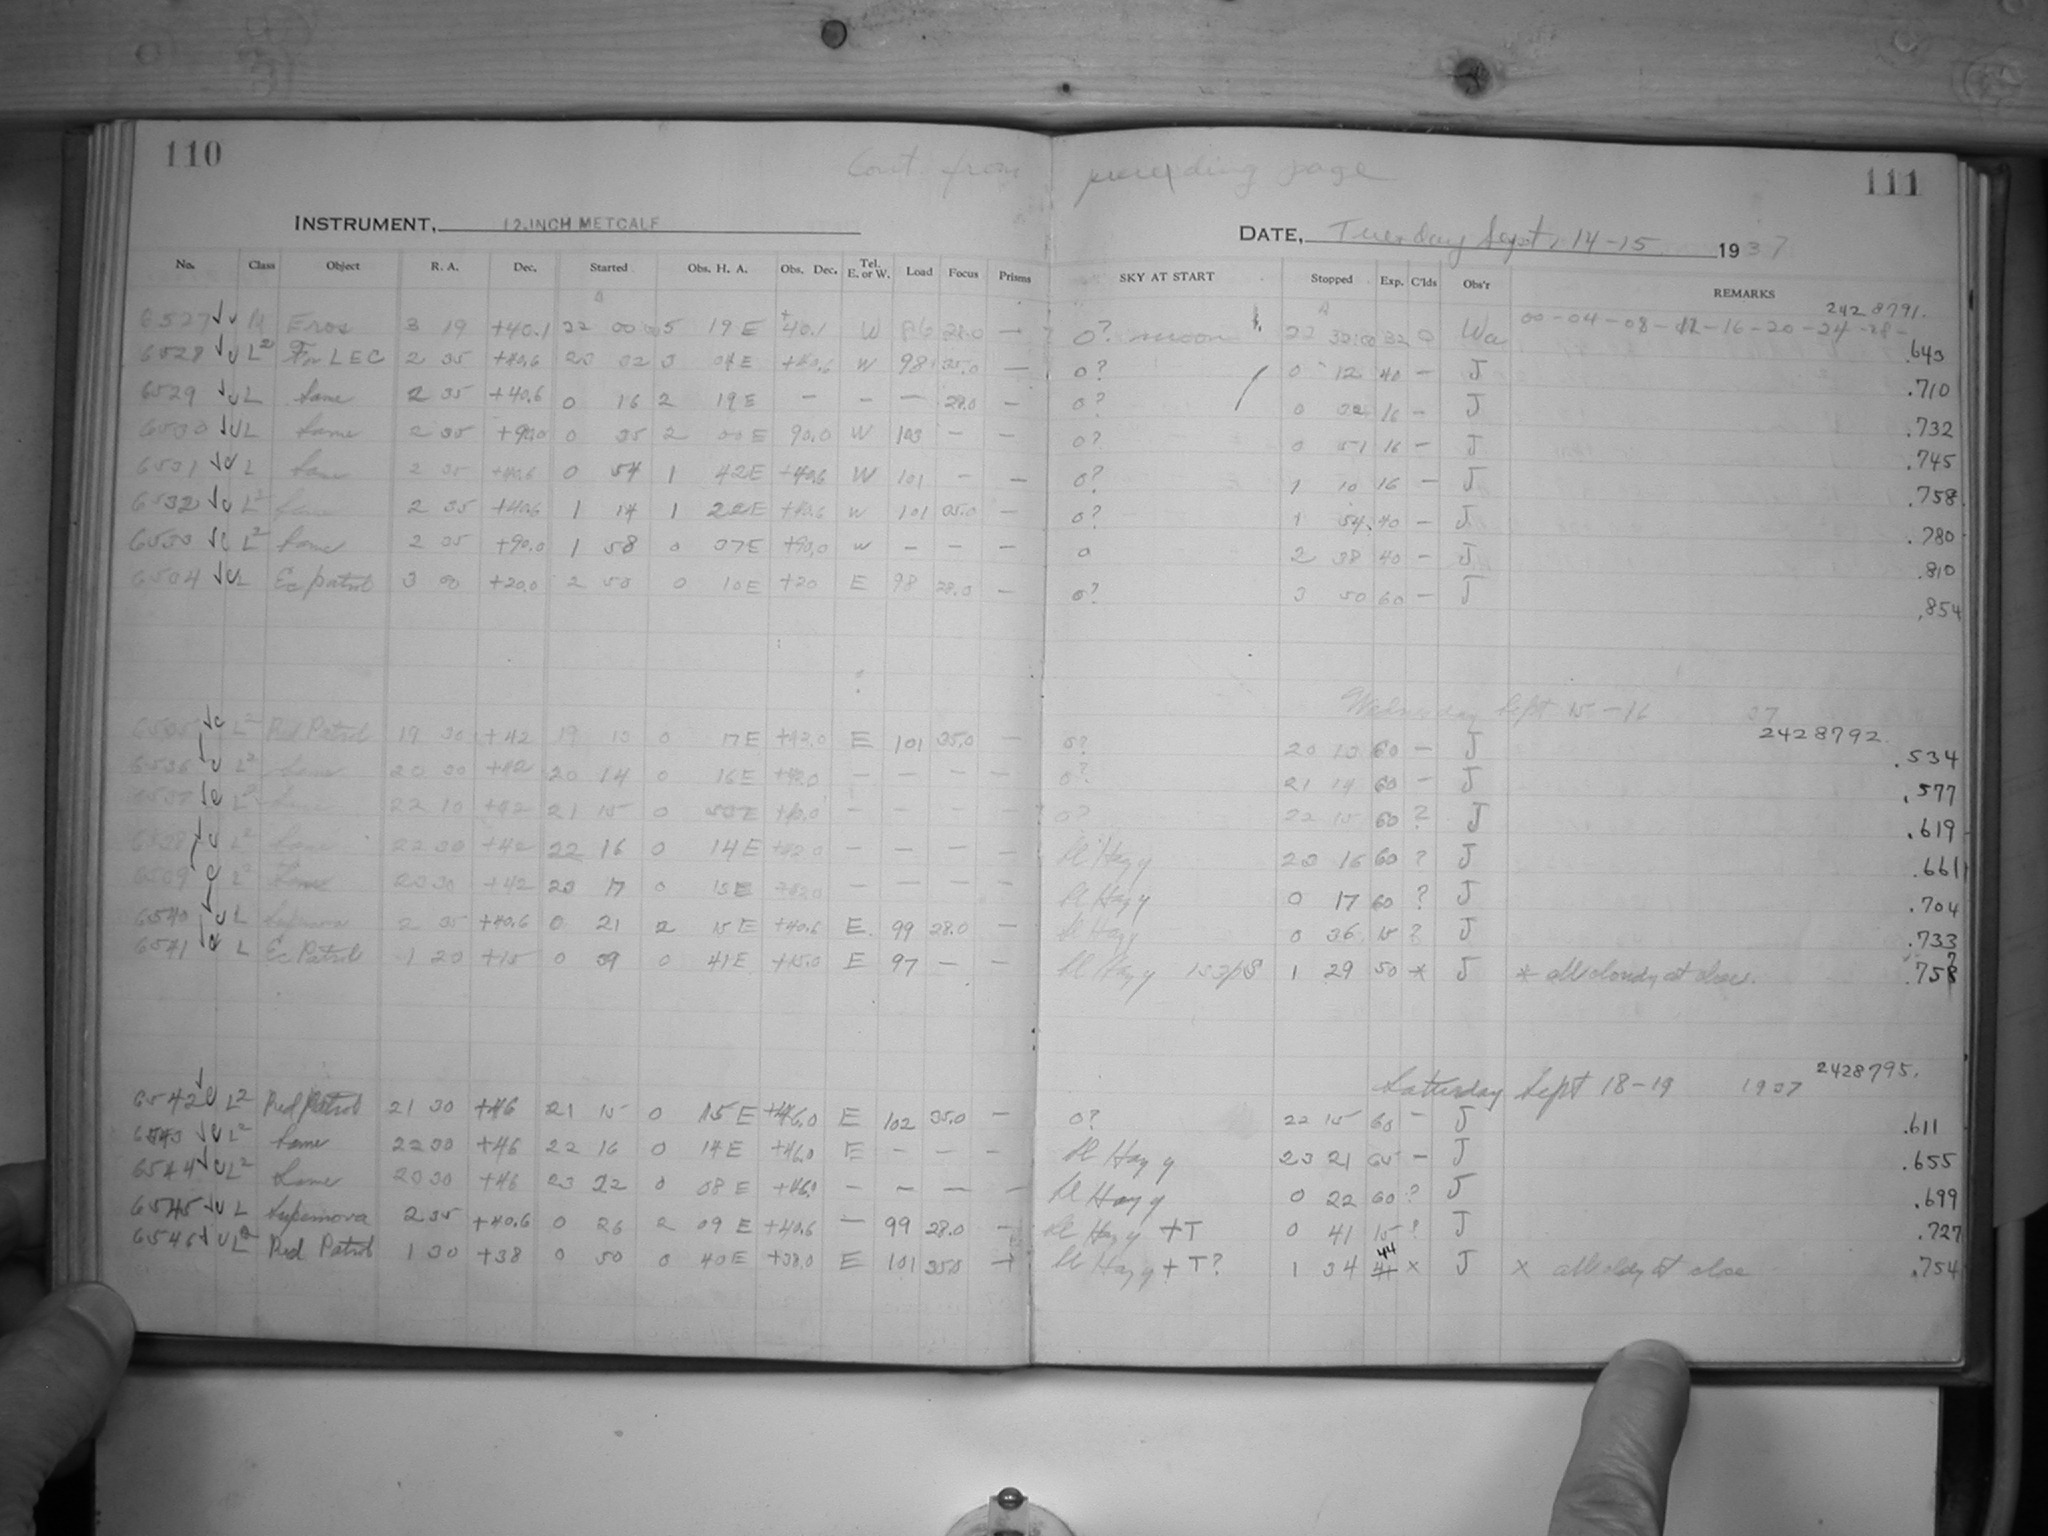 110
Cont. from preceding page
111
INSTRUMENT, 12-INCH METCALF DATE, Tuesday Sept. 14-15 1937
No. Class Object R. A. Dec. Started Obs. H. A. Obs. Dec. Tel. E. or W. Load Focus Prisms SKY AT START Stopped Exp. C'lds Obs'r REMARKS
2428791.
6527 Eros 3 19 +40.1 22 00 5 19 E +40.1 W 86 28.0 — 0? moon 22 32:00 32 0 Wa 00-04-08-12-16-20-24-28- .643
6528 L2 For LEC 2 35 +40.6 23 32 3 04 E +40.6 W 98 35.0 — 0? 0 12 40 — J .710
6529 L Same 2 35 +40.6 0 16 2 19 E — — — 28.0 — 0? 0 32 16 — J .732
6530 L Same 2 35 +90.0 0 35 2 00 E 90.0 W 103 — — 0? 0 51 16 — J .745
6531 L Same 2 35 +40.6 0 54 1 42 E +40.6 W 101 — — 0? 1 10 16 — J .758
6532 L2 Same 2 35 +40.6 1 14 1 22 E +40.6 W 101 35.0 — 0? 1 54 40 — J .780
6533 L2 Same 2 35 +90.0 1 58 0 37 E +90.0 W — — — 0 2 38 40 — J .810
6534 L Ec patrol 3 00 +20.0 2 50 0 10 E +20 E 98 28.0 — 0? 3 50 60 — J .854
Wednesday Sept 15-16 37
2428792.
6535 L2 Red Patrol 19 30 +42 19 13 0 17 E +42.0 E 101 35.0 — 0? 20 13 60 — J .534
6536 L2 Same 20 30 +42 20 14 0 16 E +42.0 — — — — 0? 21 14 60 — J .577
6537 L2 Same 22 10 +42 21 15 0 E — — — — 0? 22 15 60 ? J .619
6538 L2 Same 22 30 +42 22 16 0 14 E +42.0 — — — — Sl Hazy 23 16 60 ? J .661
6539 L2 Same 23 30 +42 23 17 0 13 E +42.0 — — — — Sl Hazy 0 17 60 ? J .704
6540 L Supernova 2 35 +40.6 0 21 2 15 E +40.6 E 99 28.0 — Sl Hazy 0 36 15 ? J .733
6541 L Ec Patrol 1 20 +15 0 39 0 41 E +15.0 E 97 — — Sl Hazy 1 29 50 * J * all cloudy at close. .758
2428795.
Saturday Sept 18-19 1937
6542 L2 Red Patrol 21 30 +46 21 15 0 15 E +46.0 E 102 35.0 — 0? 22 15 60 — J .611
6543 L2 Same 22 30 +46 22 16 0 14 E +46.0 E — — — Sl Hazy 23 21 65 — J .655
6544 L2 Same 23 30 +46 23 22 0 08 E +46. — — — — Sl Hazy 0 22 60 ? J .699
6545 L Supernova 2 35 +40.6 0 26 2 09 E +40.6 — 99 28.0 — Sl Hazy + T 0 41 15 ? J .727
6546 L2 Red Patrol 1 30 +38 0 50 0 40 E +38.0 E 101 35.0 — Sl Hazy + T? 1 34 44 x J x all cldy at close .754